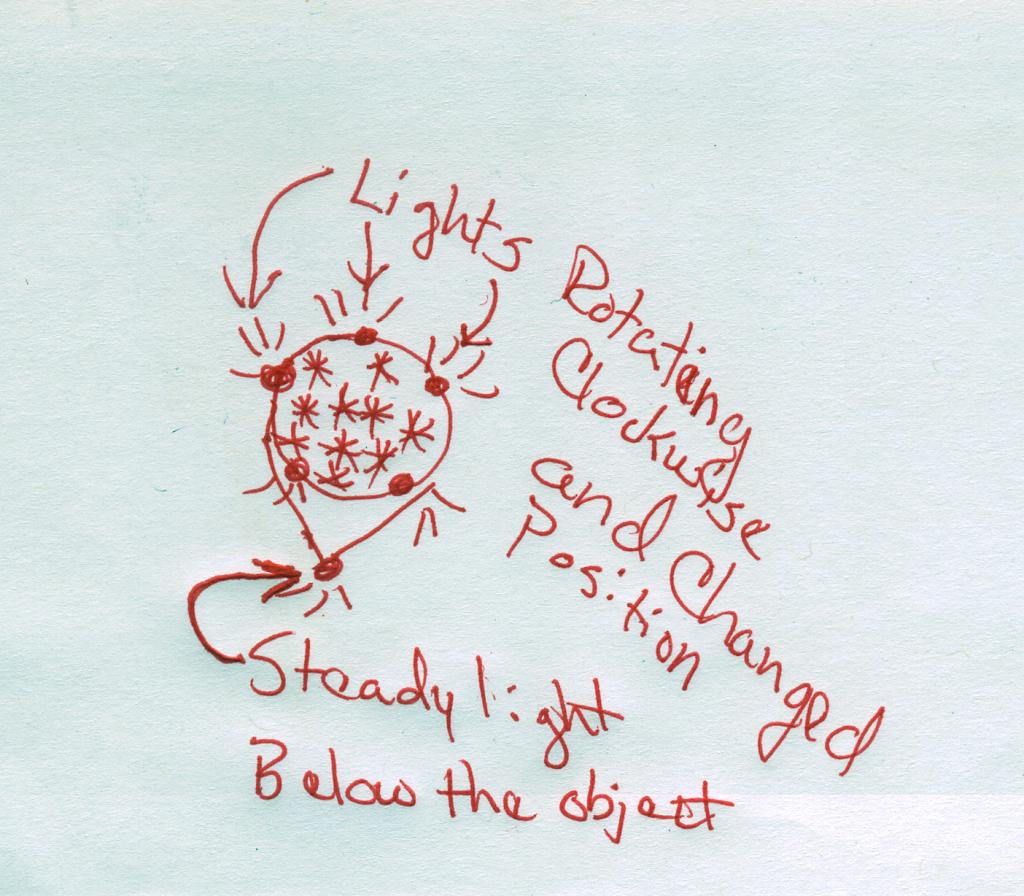 Lights Rotating
Clockwise
and Changed
Position
Steady light
Below the object